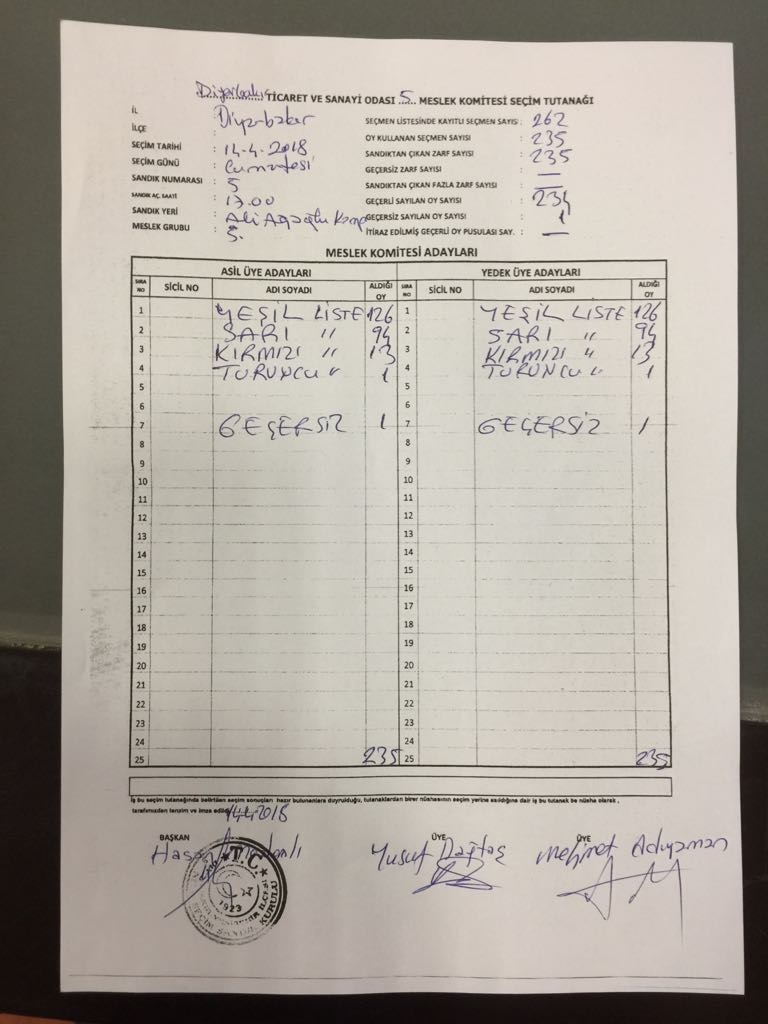 Diyarbakır TİCARET VE SANAYİ ODASI 5 MESLEK KOMİTESİ SEÇİM TUTANAĞI
İL : Diyarbakır
İLÇE :
SEÇİM TARİHİ : 14-4-2018
SEÇİM GÜNÜ : Cumartesi
SANDIK NUMARASI : 5
SANDIK AÇ. SAATİ : 17.00
SANDIK YERİ : Ali Ağaoğlu Kamp
MESLEK GRUBU : 5.
SEÇMEN LİSTESİNDE KAYITLI SEÇMEN SAYISI : 262
OY KULLANAN SEÇMEN SAYISI : 235
SANDIKTAN ÇIKAN ZARF SAYISI : 235
GEÇERSİZ ZARF SAYISI : —
SANDIKTAN ÇIKAN FAZLA ZARF SAYISI : —
GEÇERLİ SAYILAN OY SAYISI : 234
GEÇERSİZ SAYILAN OY SAYISI : 1
İTİRAZ EDİLMİŞ GEÇERLİ OY PUSULASI SAY. : —
MESLEK KOMİTESİ ADAYLARI
ASİL ÜYE ADAYLARI YEDEK ÜYE ADAYLARI
SIRA NO SİCİL NO ADI SOYADI ALDIĞI OY SIRA NO SİCİL NO ADI SOYADI ALDIĞI OY
1 YEŞİL LİSTE 126 1 YEŞİL LİSTE 126
2 SARI " 94 2 SARI " 94
3 KIRMIZI " 13 3 KIRMIZI " 13
4 TURUNCU " 1 4 TURUNCU " 1
5 5
6 6
7 GEÇERSİZ 1 7 GEÇERSİZ 1
8 8
9 9
10 10
11 11
12 12
13 13
14 14
15 15
16 16
17 17
18 18
19 19
20 20
21 21
22 22
23 23
24 24
25 235 25 235
İş bu seçim tutanağında belirtilen seçim sonuçları hazır bulunanlara duyrulduğu, tutanaklardan birer nüshasının seçim yerine asıldığına dair iş bu tutanak be nüsha olarak ,
tarafımızdan tanzim ve imza edildi. 14.4.2018
BAŞKAN ÜYE ÜYE
Hasan Yusuf Dağtaş Mehmet Adıyaman
T.C.
1923
SEÇİM SANDIK KURULU